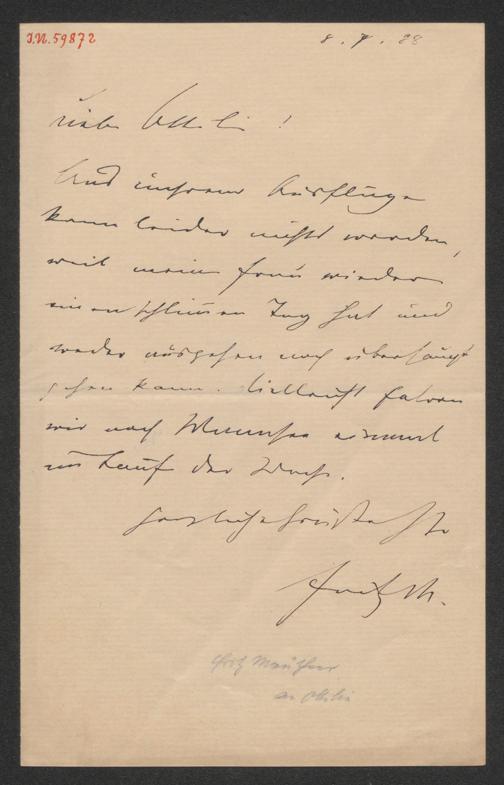 J.N. 59872
8. 7. 88
Liebe Ottilie!
Aus unserem Ausfluge
kann leider nichts werden,
weil meine Frau wieder
einen schlimen Tag hat und
weder ausgehen noch überhaupt
gehen kann. Vielleicht fahren
wir nach Wannsee einmal
im Lauf der Woche.
Herzliche Grüße
Fritz M.
Fritz Mauthner
an Ottilie